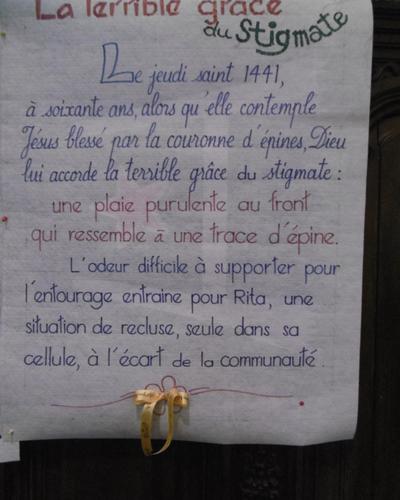 La Terrible grâce
du Stigmate
Le jeudi saint 1441,
à soixante ans, alors qu'elle contemple
Jésus blessé par la couronne d'épines, Dieu
lui accorde la terrible grâce du stigmate :
une plaie purulente au front
qui ressemble à une trace d'épine.
L'odeur difficile à supporter pour
l'entourage entraine pour Rita, une
situation de recluse, seule dans sa
cellule, à l'écart de la communauté.